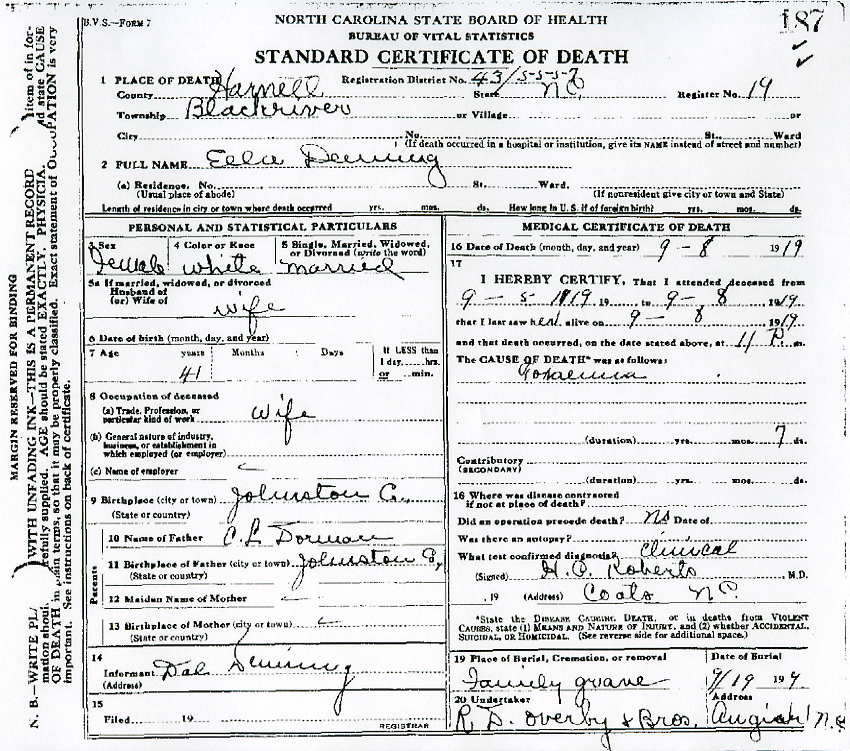 B.V.S.—FORM 7
NORTH CAROLINA STATE BOARD OF HEALTH
BUREAU OF VITAL STATISTICS
STANDARD CERTIFICATE OF DEATH
187
1 PLACE OF DEATH
Registration District No. 43/5-5-5-7
County Harnett State NC Register No. 19
Township Blackriver or Village or
City No. St. Ward
(If death occurred in a hospital or institution, give its NAME instead of street and number)
2 FULL NAME Deming
(a) Residence. No. St. Ward.
(Usual place of abode) (If nonresident give city or town and State)
Length of residence in city or town where death occurred yrs. mos. ds. How long in U. S. if of foreign birth? yrs. mos. ds.
PERSONAL AND STATISTICAL PARTICULARS
3 Sex 4 Color or Race 5 Single, Married, Widowed, or Divorced (write the word)
Female White married
5a If married, widowed, or divorced
Husband of
(or) Wife of
wife
6 Date of birth (month, day, and year)
7 Age years Months Days If LESS than
1 day, ....hrs.
or ...min.
41
8 Occupation of deceased
(a) Trade, Profession, or
particular kind of work wife
(b) General nature of industry,
business, or establishment in
which employed (or employer)
(c) Name of employer
9 Birthplace (city or town) Johnston Co.,
(State or country)
10 Name of Father C. L. Dorman
11 Birthplace of Father (city or town) Johnston Co,
(State or country)
12 Maiden Name of Mother
13 Birthplace of Mother (city or town)
(State or country)
Parents
14
Informant Dal Deming
(Address)
15
Filed 19
REGISTRAR
MEDICAL CERTIFICATE OF DEATH
16 Date of Death (month, day, and year) 9 - 8 1919
17
I HEREBY CERTIFY, That I attended deceased from
9 - 5 1919 19 to 9 - 8, 1919
that I last saw her alive on 9 - 8, 1919
and that death occurred, on the date stated above, at 11 P. m.
The CAUSE OF DEATH* was as follows:
(duration) yrs. mos. 7 ds.
Contributory
(SECONDARY)
(duration) yrs. mos. ds.
18 Where was disease contracted
if not at place of death?
Did an operation precede death? No Date of
Was there an autopsy?
What test confirmed diagnosis? Clinical
(Signed) Roberts M.D.
, 19 (Address) Coats NC
*State the DISEASE CAUSING DEATH, or in deaths from VIOLENT
CAUSES, state (1) MEANS AND NATURE OF INJURY, and (2) whether ACCIDENTAL,
SUICIDAL, OR HOMICIDAL. (See reverse side for additional space.)
19 Place of Burial, Cremation, or removal Date of Burial
Family grave 9/19 19
20 Undertaker Address
R. D. Overby & Bros. N.C.
MARGIN RESERVED FOR BINDING
N. B.—WRITE WITH UNFADING INK—THIS IS A PERMANENT RECORD
item of in for-
mation should refully supplied. AGE should be stated EXACTLY. PHYSICIA state CAUSE
OF DEATH in terms, so that it may be properly classified. Exact statement of OCCUPATION is very
important. See instructions on back of certificate.